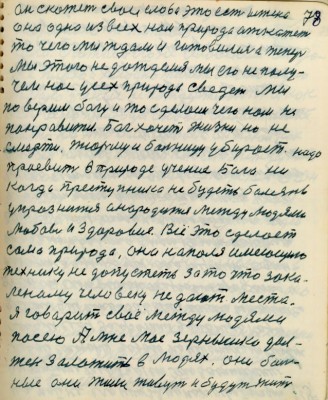 он скажет свое слова это есть истена
78
она одно из всех нам природа откажет
то чего мы ждали и готовился а теперь
мы этого не дождемся мы его не полу-
чем нас усех природа сведет мы
поверим богу и то сделаим чего нам не
понравится. Бог хочет жизни но не
смерти. тюрму и больницу убирает. надо
проевит в природе учение Бога ни
когда преступника не будеть болезнь
упразнится а народится между людями
любовь и здоровия. Всё это сделает
сама природа, она на поля имеющию
технику не допустеть за то что зака-
леному человеку не дают места.
Я говорит своё между людями
посею А мне мое зернышко дол-
жен заложить в людях. они бол-
ные они жили живут и будут жит.